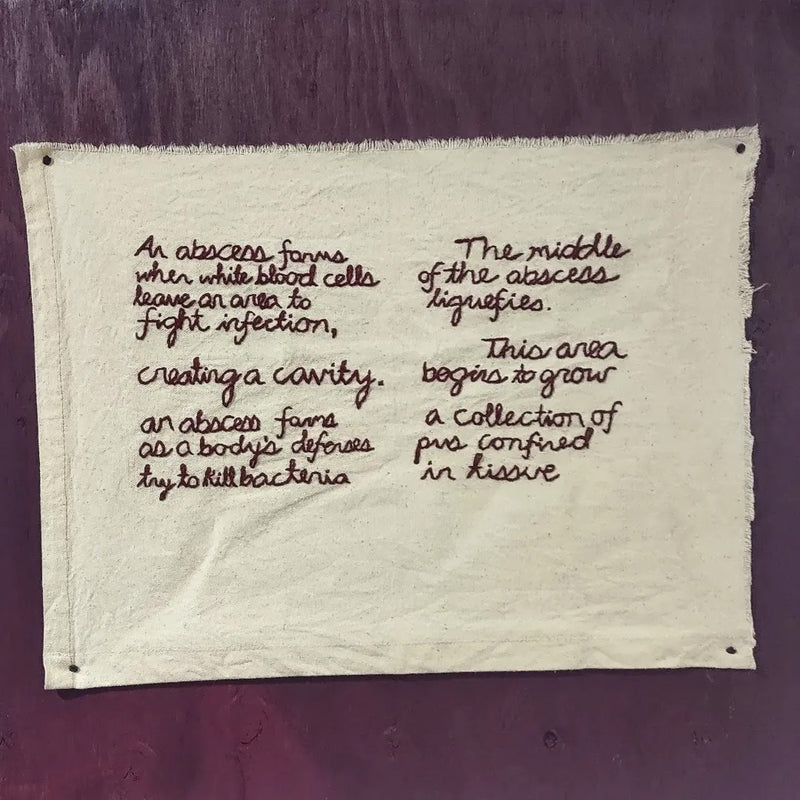 An abscess forms
when white blood cells
leave an area to
fight infection,
creating a cavity.
an abscess forms
as a body's defenses
try to kill bacteria
The middle
of the abscess
liquefies.
This area
begins to grow
a collection of
pus confined
in tissue